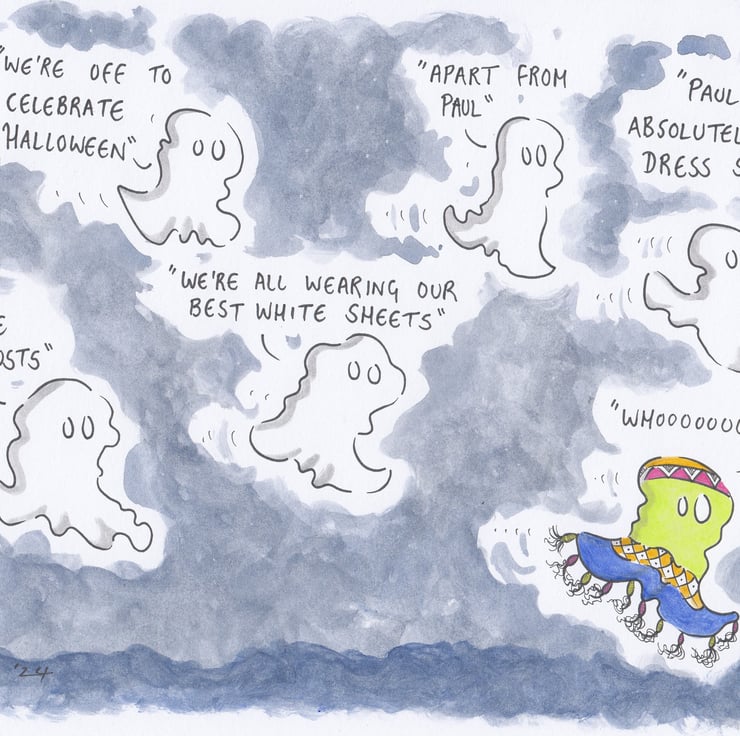 "WE'RE OFF TO
CELEBRATE
HALLOWEEN"
"APART FROM
PAUL"
"PAUL
DRESS
"WE'RE ALL WEARING OUR
BEST WHITE SHEETS"
"WHOOOOOOO
'24